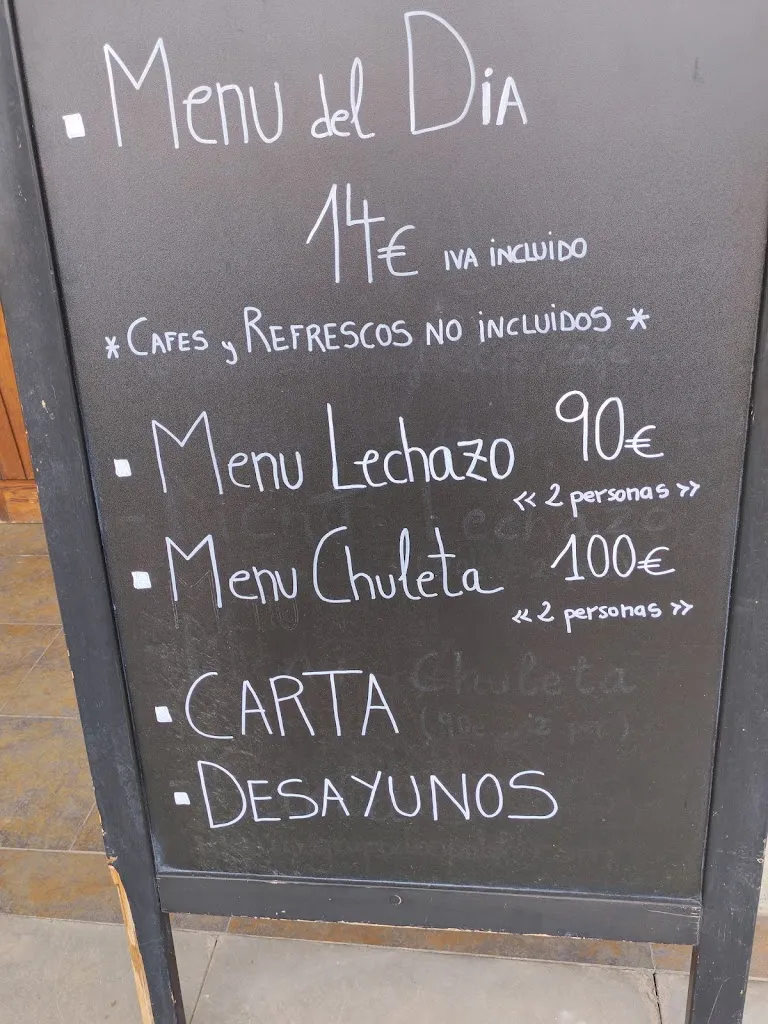 Menu del Dia
14€ IVA incluido
*CAFES y REFRESCOS NO incluidos *
Menu Lechazo 90€
<< 2 personas >>
Menu Chuleta 100€
<< 2 personas >>
CARTA
DESAYUNOS